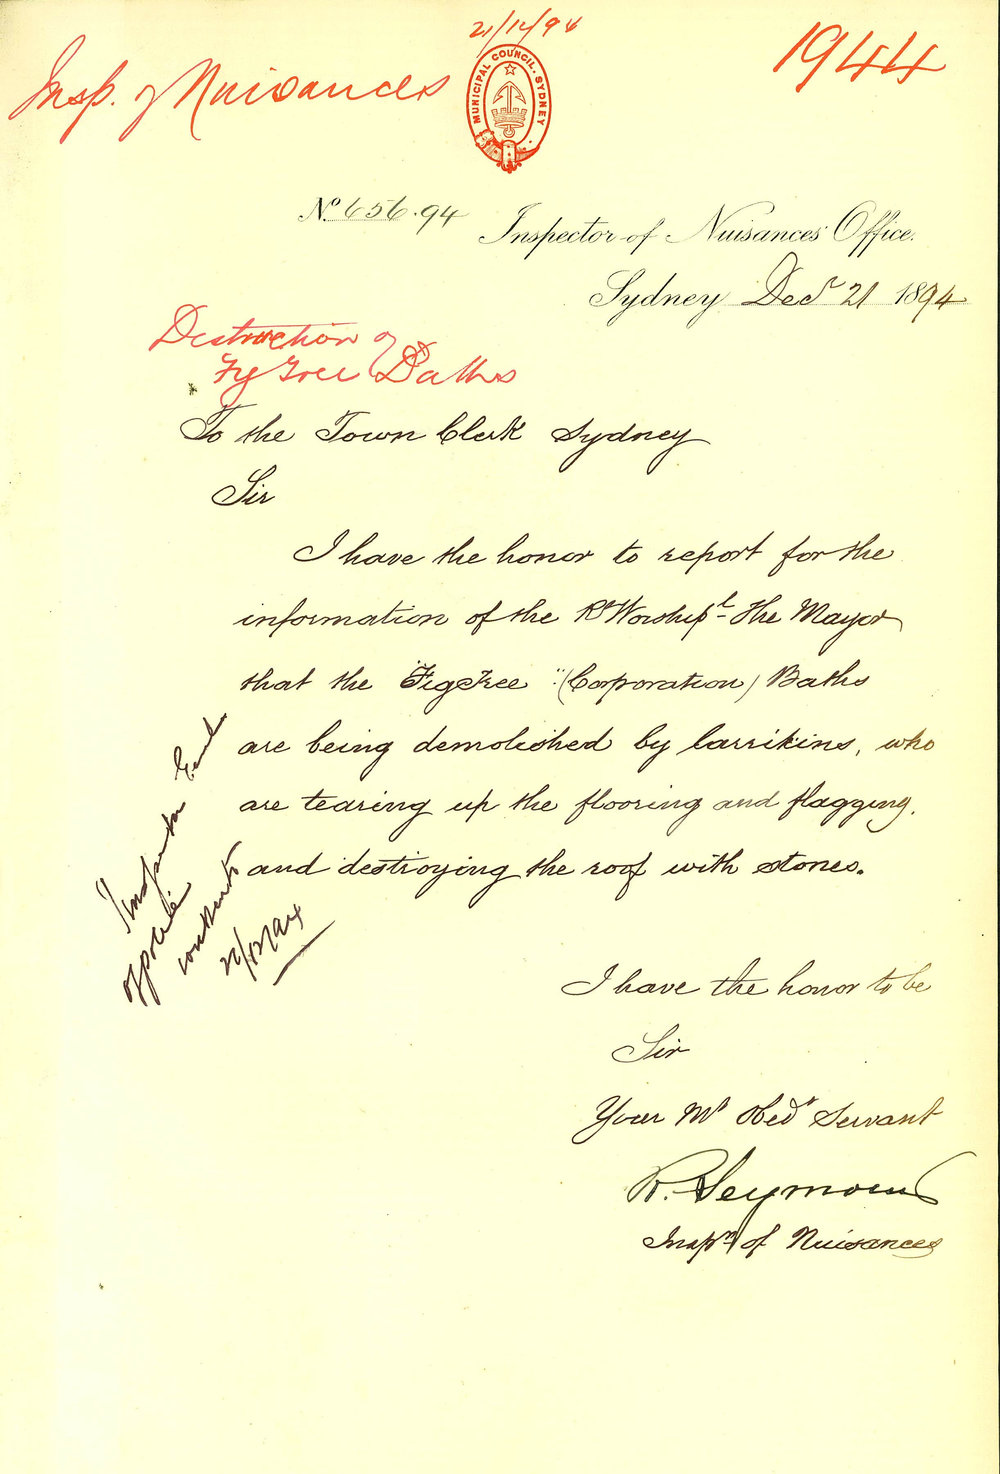 21/12/94
Insp. of Nuisances
1944
MUNICIPAL COUNCIL. SYDNEY
No 656.94
Inspector of Nuisances Office.
Sydney Decr 21 1894
Destruction of
Fig Tree Baths
To the Town Clerk Sydney
Sir
I have the honor to report for the
information of the Rt Worshipl the Mayor
that the "Fig Tree" (Corporation) Baths
are being demolished by larrikins, who
are tearing up the flooring and flagging,
and destroying the roof with stones.
21/12/94
I have the honor to be
Sir
Your Mt Obedt Servant
R. Seymour
Inspr of Nuisances